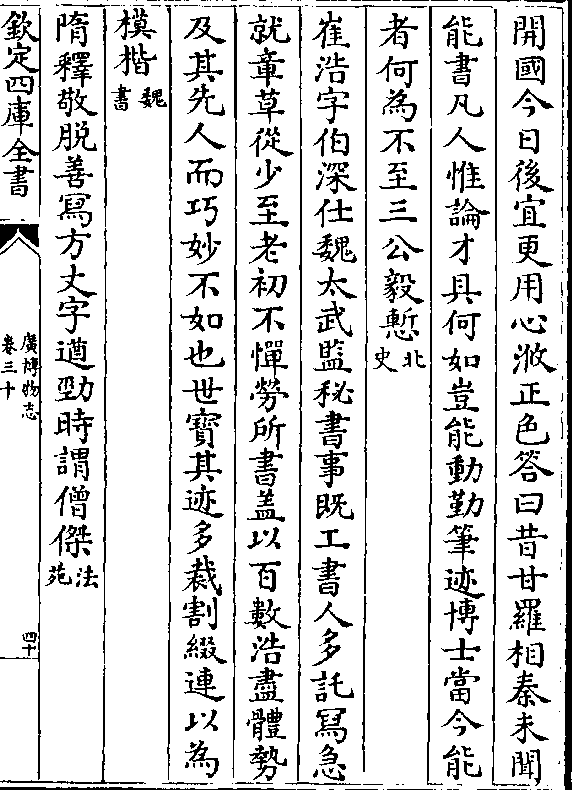 開國今日後宜更用心浟正色答曰昔甘羅相秦未聞
能書凡人惟論才具何如豈能動勤筆迹博士當今能
者何為不至三公毅慙北史
崔浩字伯深仕魏太武監秘書事既工書人多託冩急
就章草從少至老初不憚勞所書盖以百數浩盡體勢
及其先人而巧妙不如也世寶其迹多裁割綴連以為
模楷魏書
隋釋敬脱善冩方丈字遒勁時謂僧傑法苑
欽定四庫全書
廣博物志
卷三十
四十